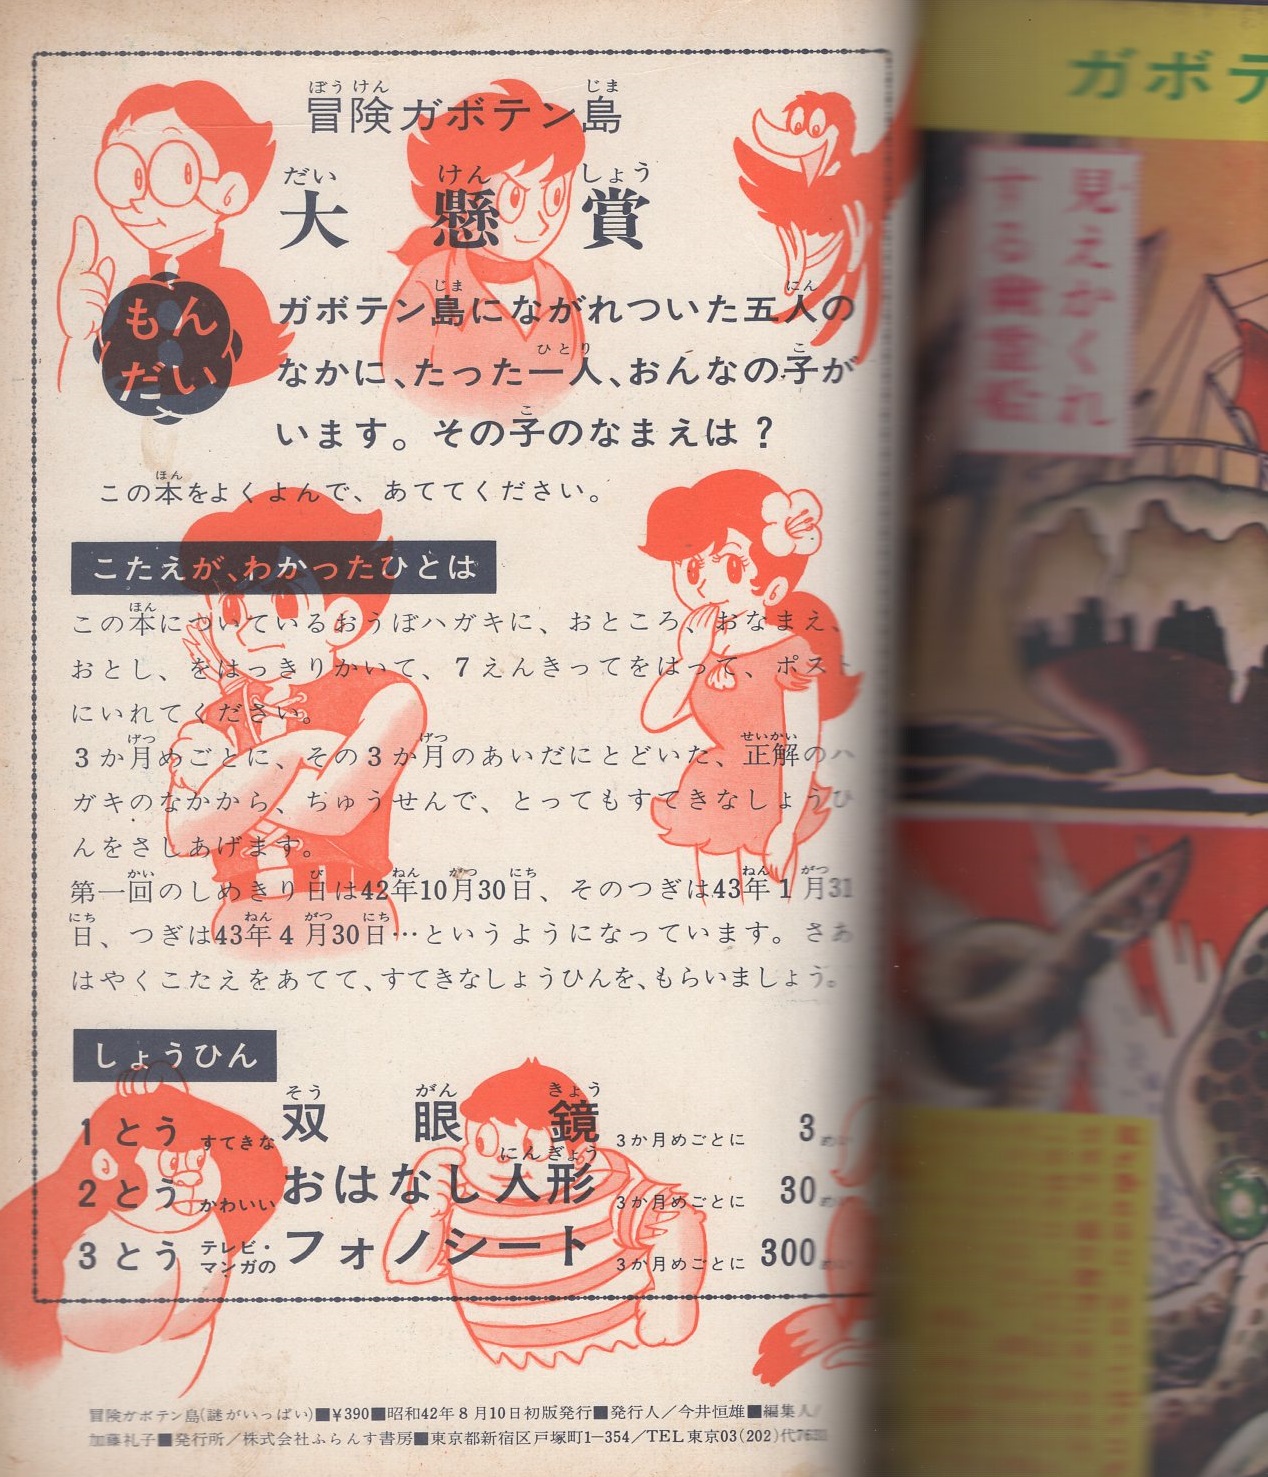 冒険ガボテン島
大懸賞
もんだい
ガボテン島にながれついた五人の
なかに、たった一人、おんなの子が
います。その子のなまえは？
この本をよくよんで、あててください。
こたえが、わかったひとは
この本についているおうぼハガキに、おところ、おなまえ、
おとし、をはっきりかいて、7えんきってをはって、ポスト
にいれてください。
3か月めごとに、その3か月のあいだにとどいた、正解のハ
ガキのなかから、ちゅうせんで、とってもすてきなしょうひ
んをさしあげます。
第一回のしめきり日は42年10月30日、そのつぎは43年1月31
日、つぎは43年4月30日…というようになっています。さあ
はやくこたえをあてて、すてきなしょうひんを、もらいましょう。
しょうひん
1とう すてきな 双眼鏡 3か月めごとに 3
2とう かわいい おはなし人形 3か月めごとに 30
3とう テレビ・マンガの フォノシート 3か月めごとに 300
冒険ガボテン島(謎がいっぱい)■¥390■昭和42年8月10日初版発行■発行人／今井恒雄■編集人/
加藤礼子■発行所／株式会社ふらんす書房■東京都新宿区戸塚町1-354／TEL東京03(202)代
ガボテ
見えかくれ
する幽霊船